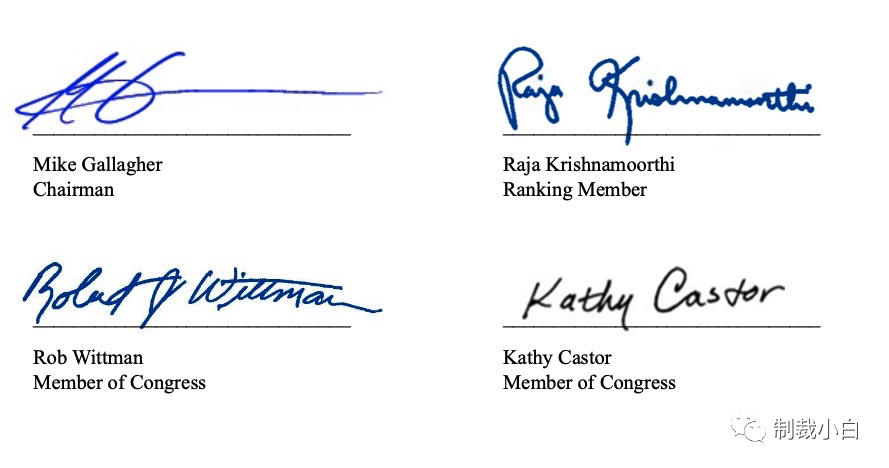 Raja Krishnamoorthi
Mike Gallagher
Chairman
Raja Krishnamoorthi
Ranking Member
Robert J Wittman
Kathy Castor
Rob Wittman
Member of Congress
Kathy Castor
Member of Congress
制裁小白